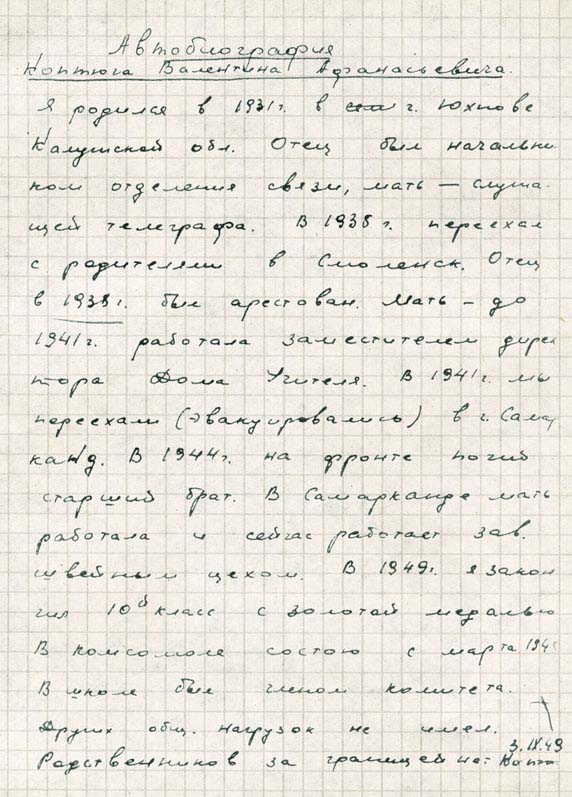 Автобиография
Коптюга Валентина Афанасьевича.
Я родился в 1931г. в г. Юхнове
Калужской обл. Отец был начальни-
ком отделения связи, мать – служа-
щей телеграфа. В 1938г. переехал
с родителями в Смоленск. Отец
в 1938г. был арестован. Мать – до
1941г. работала заместителем дирек
тора Дома Учителя. В 1941г. мы
переехали (эвакуировались) в г. Самар
канд. В 1944г. на фронте погиб
старший брат. В Самарканде мать
работала и сейчас работает зав.
швейным цехом. В 1949г. я закон
чил 10й класс с золотой медалью
В комсомоле состою с марта
В школе был членом комитета.
Других общ. нагрузок не имел.
Родственников за границей не:
3.IX.49
Копт